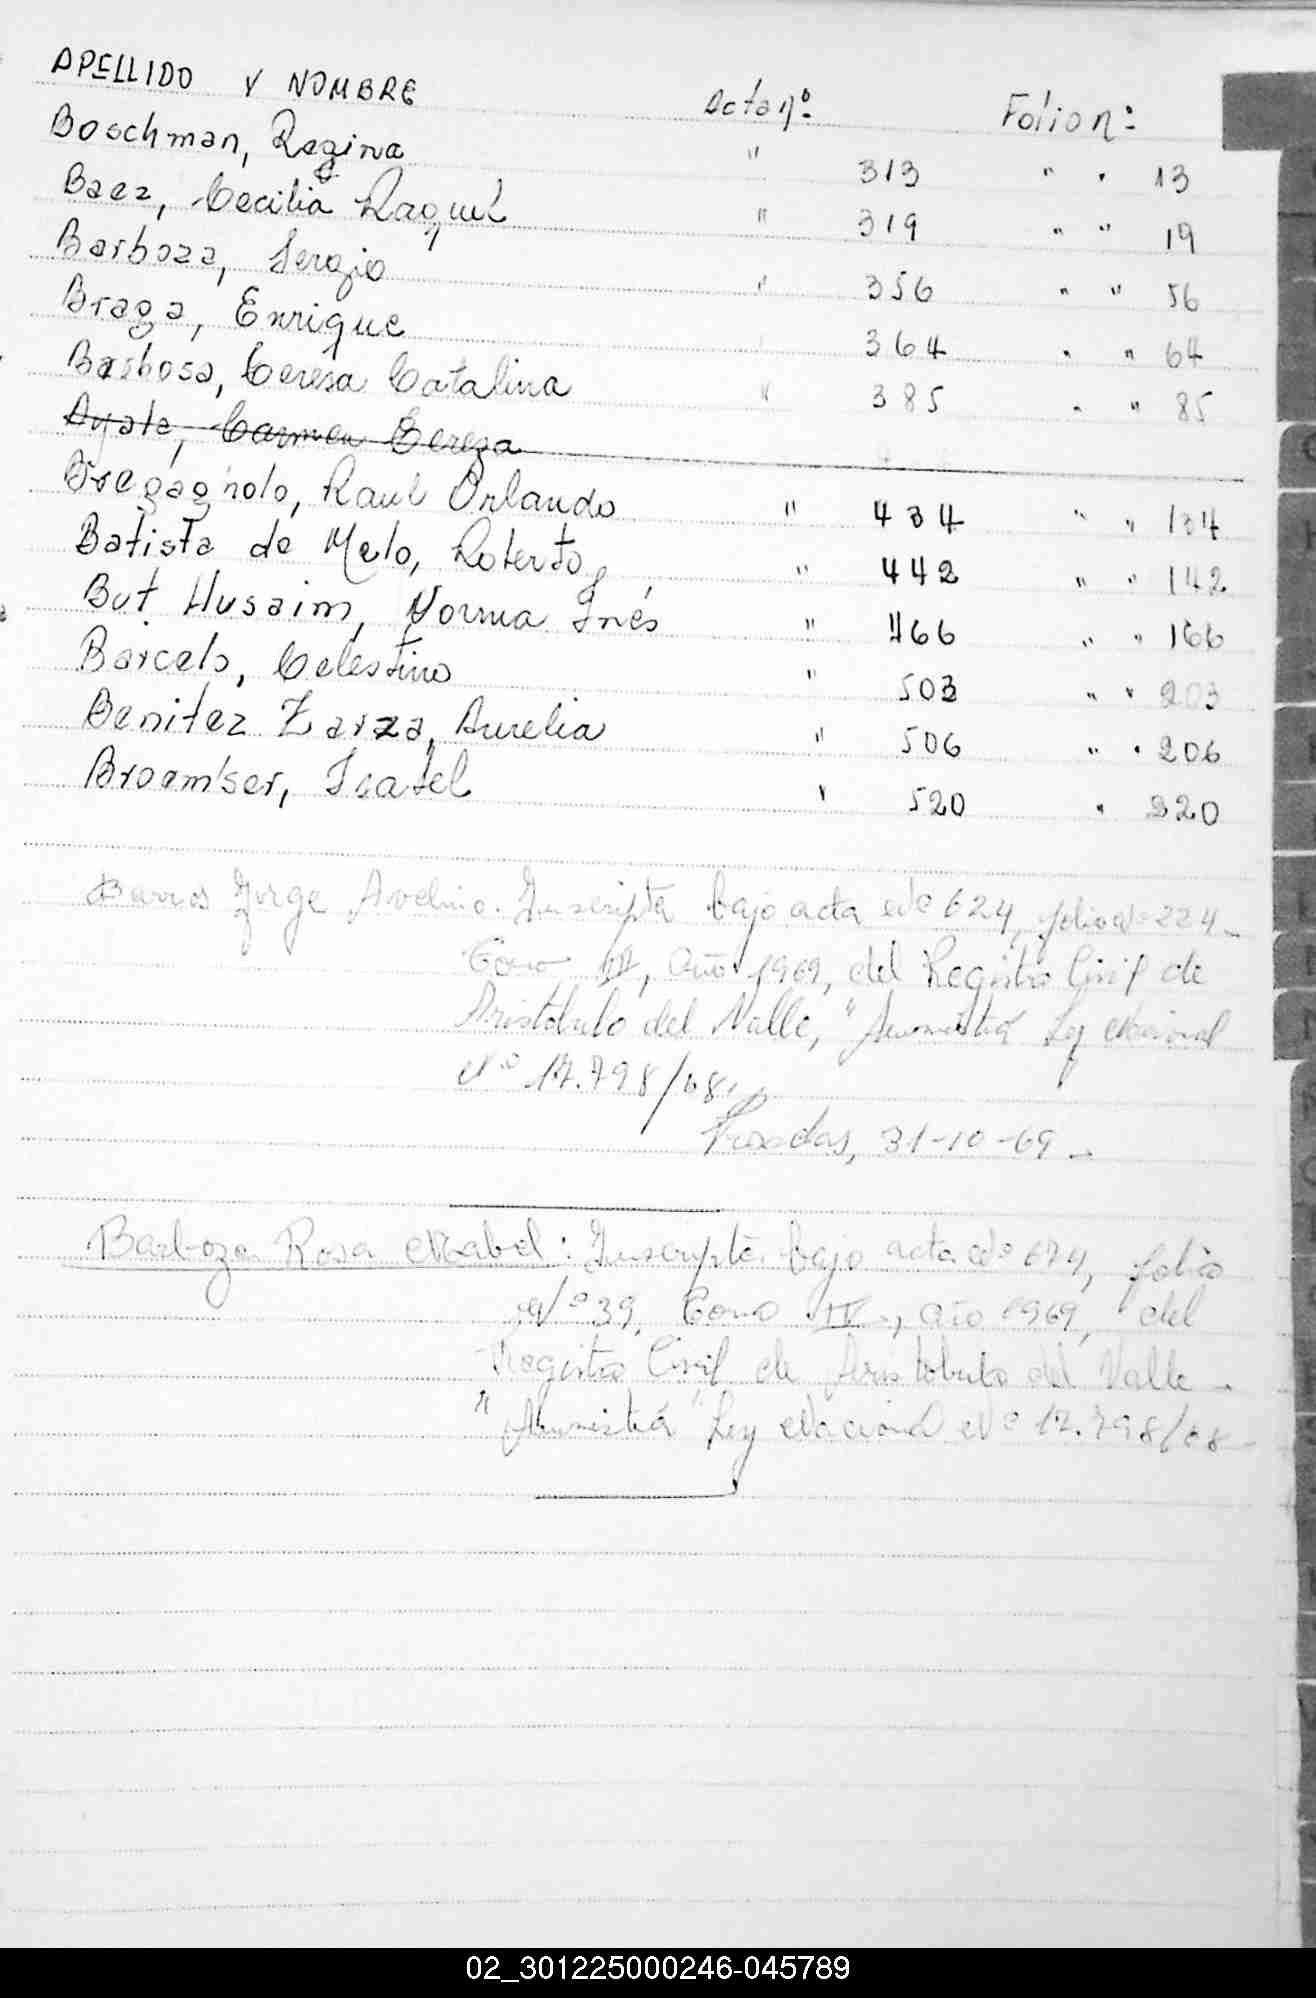 APELLIDO Y NOMBRE Acta nº Folio nº
Boschman, Regina " 313 " " 13
Baez, Cecilia Raquel " 319 " " 19
Barboza, Sergio " 356 " " 56
Braga, Enrique 364 " " 64
Barbosa, Teresa Catalina " 385 " " 85
Ayala, Carmen Teresa
Bregagnolo, Raul Orlando " 434 " " 134
Batista de Melo, Roberto " 442 " " 142
But Husaim, Norma Inés " 466 " " 166
Barcelo, Celestino " 503 " " 203
Benitez Zarza, Aurelia " 506 " " 206
Broemser, Isabel " 520 " 220
Barros Jorge Avelino. Inscripta bajo acta Nº 624, folio Nº 224_
Tomo IV, año 1969, del Registro Civil de
Aristobulo del Valle, "Amnistia" Ley Nacional
Nº 17.798/68.
Posadas, 31-10-69_
Barboza Rosa Mabel: Inscripta bajo acta Nº 674, folio
Nº 39, Tomo IV, año 1969, del
Registro Civil de Aristobulo del Valle_
"Amnistia" Ley Nacional Nº 17.798/68_
02_301225000246-045789